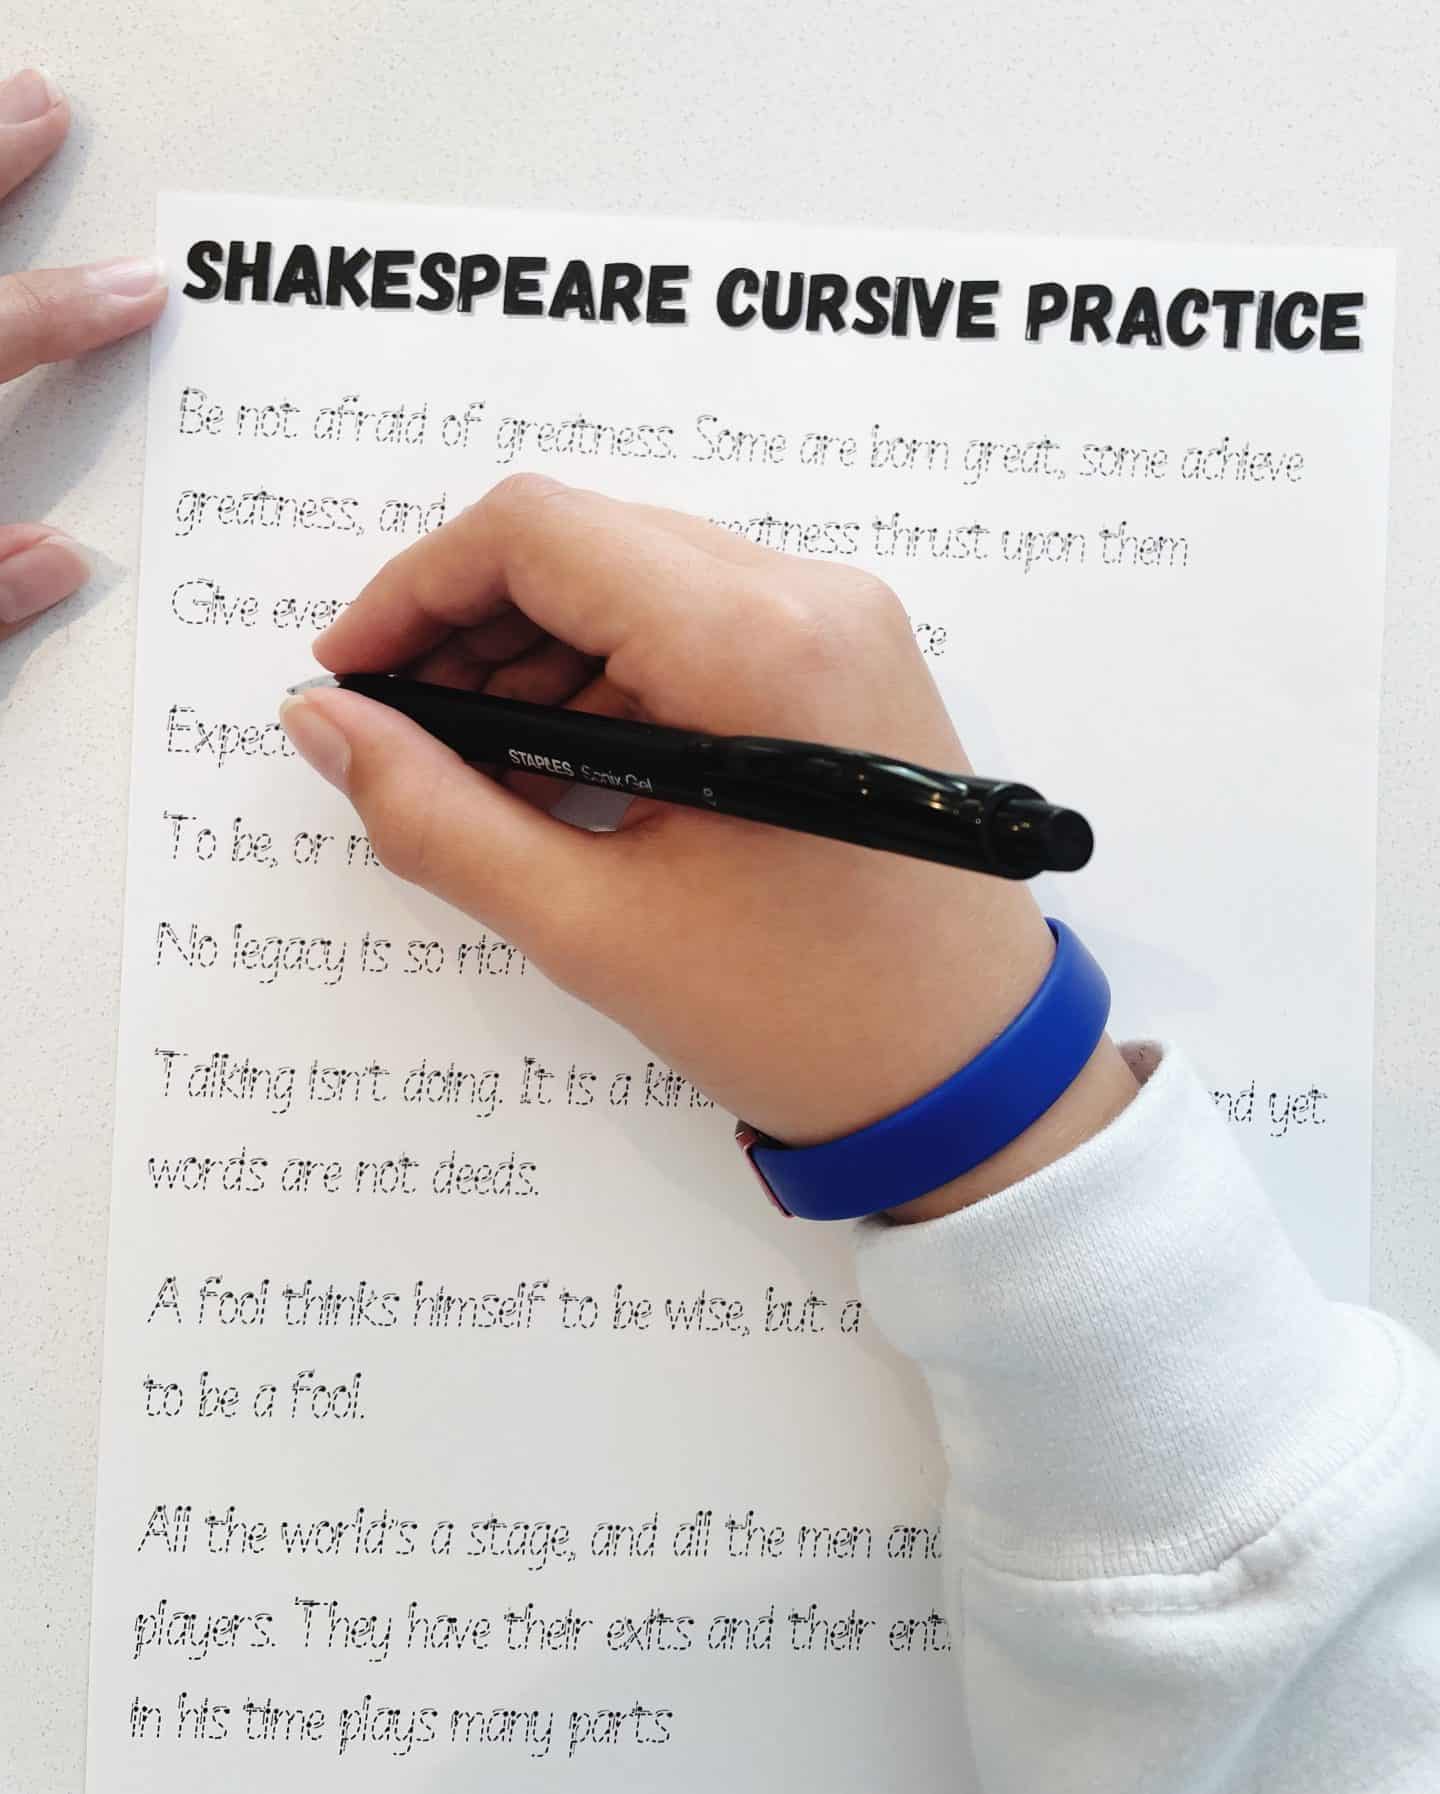 SHAKESPEARE CURSIVE PRACTICE
Be not afraid of greatness. Some are born great, some achieve
greatness, and thrust upon them
Give
To be, or
STAPLES Sonix Gel
No legacy is so rich
Talking isn't doing. It is a and yet
words are not deeds.
A fool thinks himself to be wise, but a
to be a fool.
All the world's a stage, and all the men and
players. They have their exits and their
in his time plays many parts